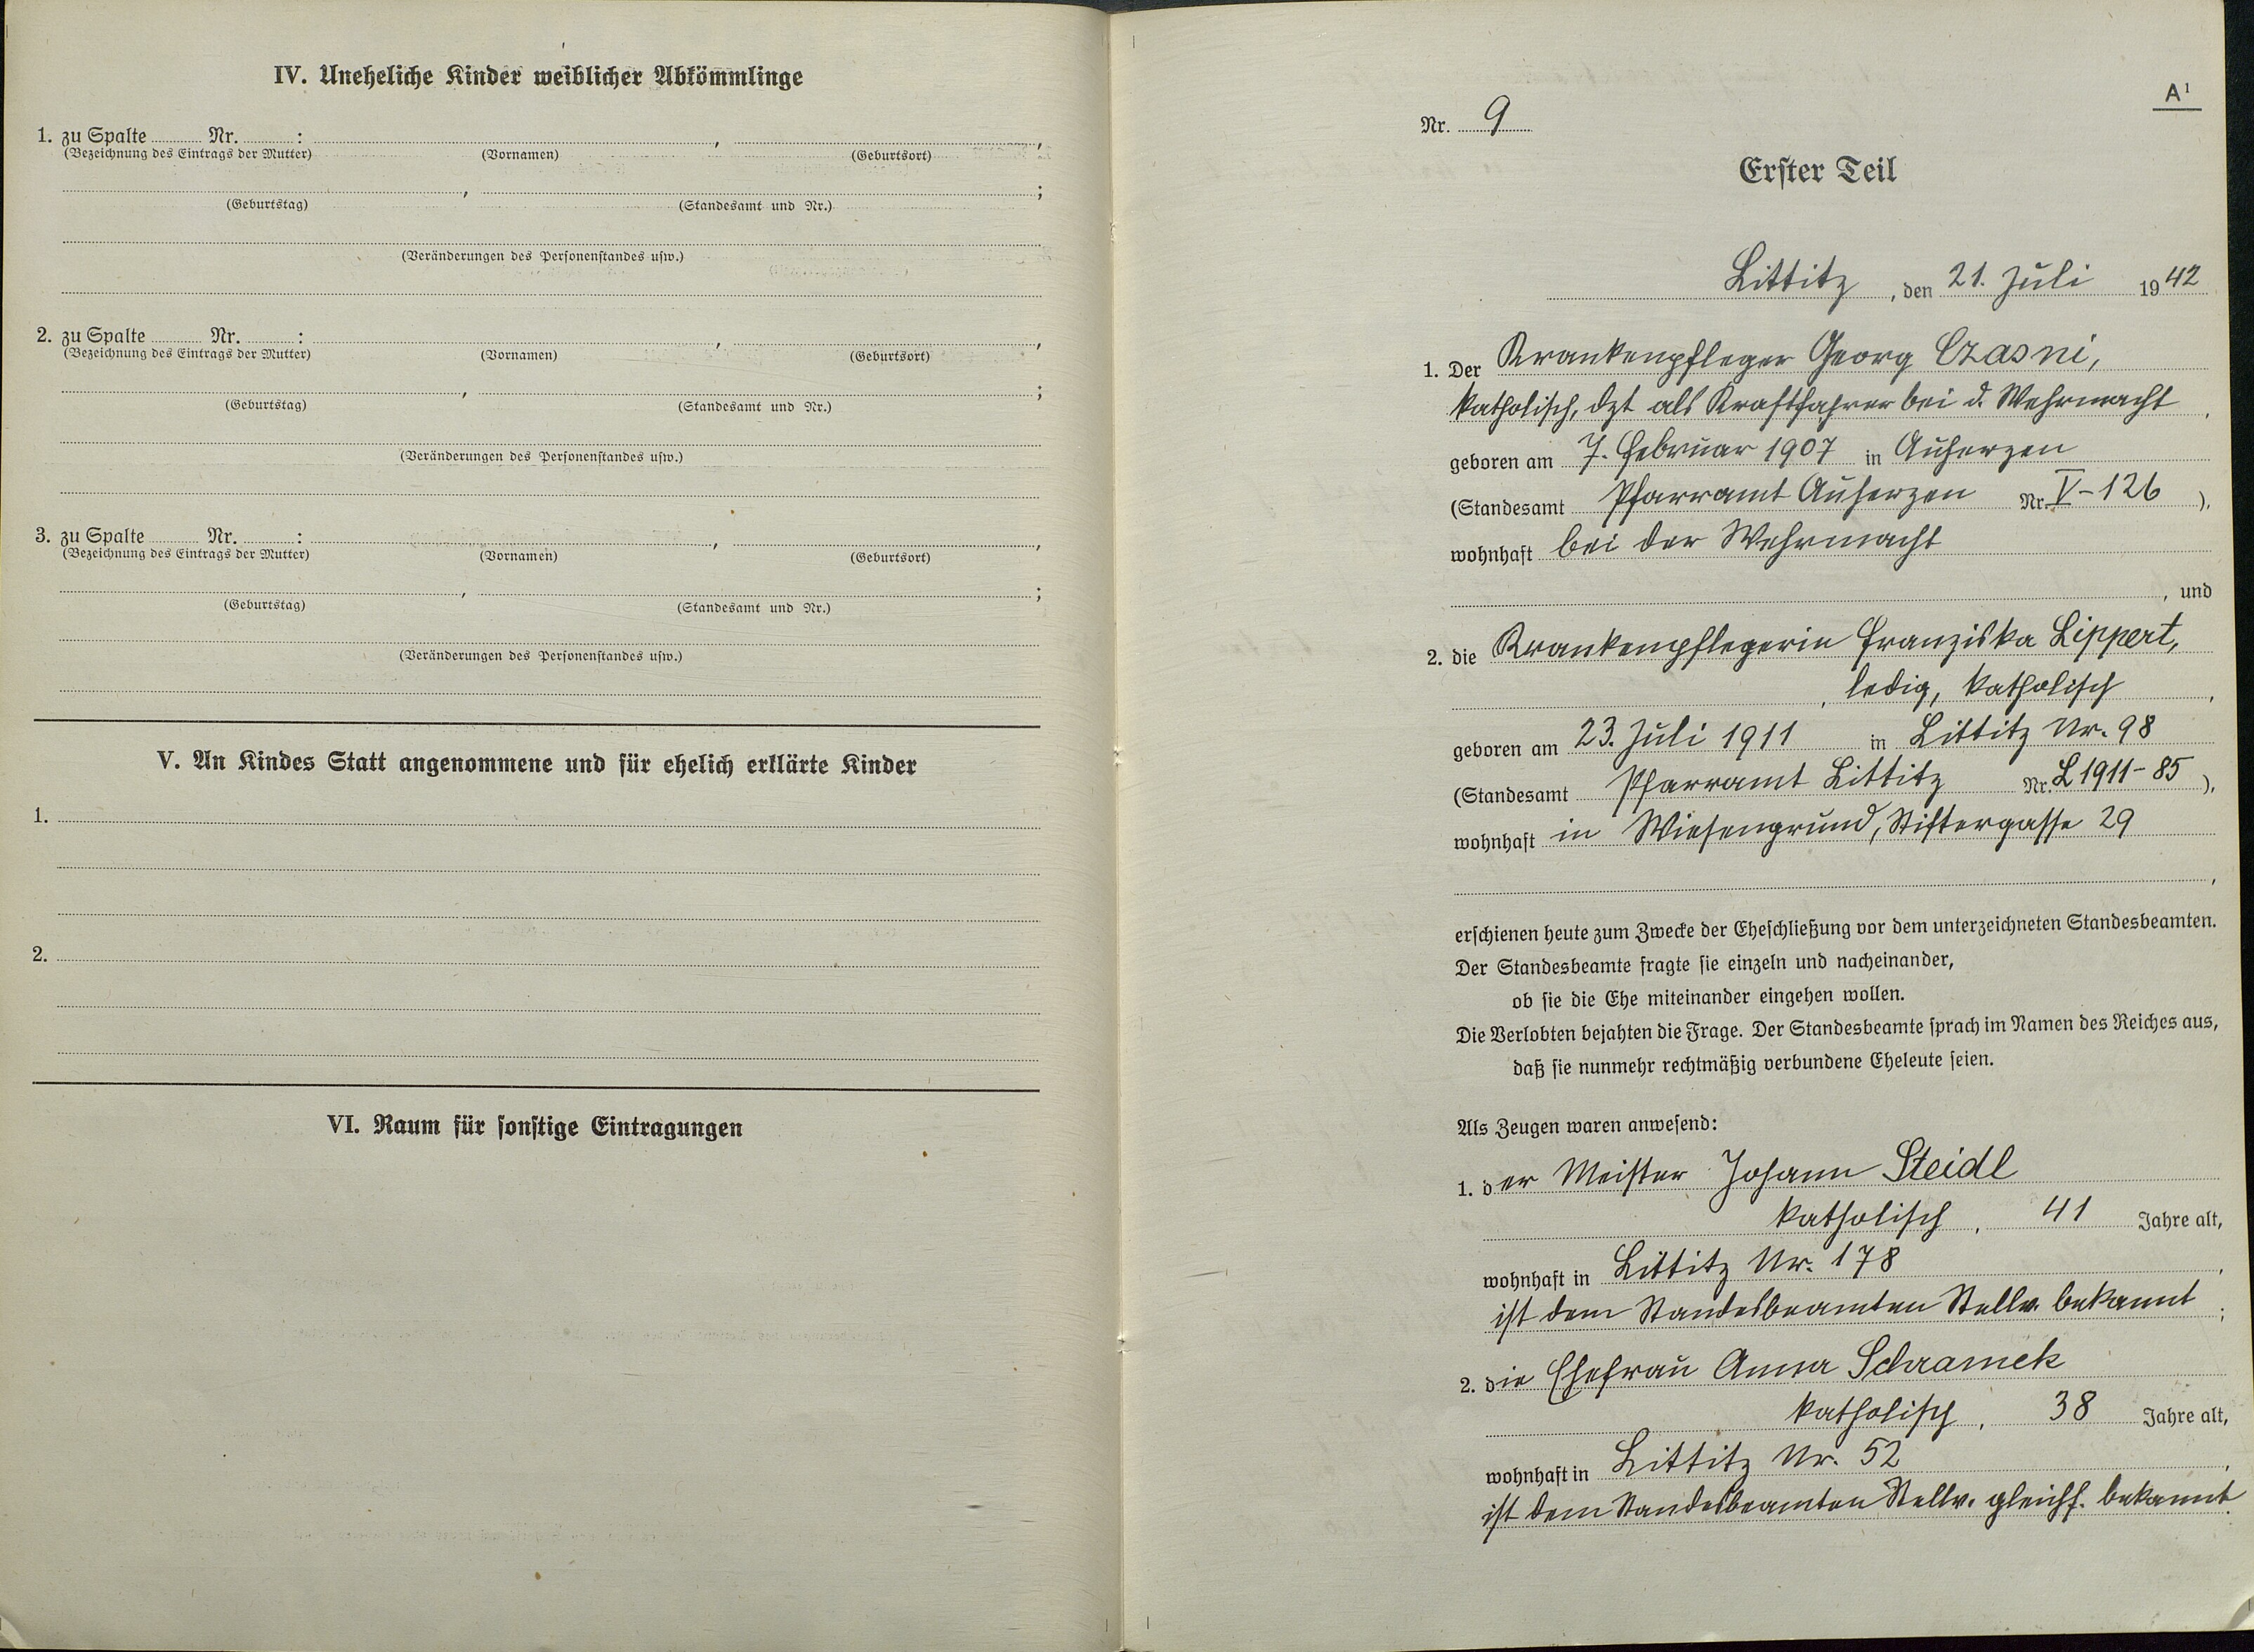 IV. Uneheliche Kinder weiblicher Abkömmlinge
1. zu Spalte Nr. : , ,
(Bezeichnung des Eintrags der Mutter) (Vornamen) (Geburtsort)
, ;
(Geburtstag) (Standesamt und Nr.)
(Veränderungen des Personenstandes usw.)
2. zu Spalte Nr. : , ,
(Bezeichnung des Eintrags der Mutter) (Vornamen) (Geburtsort)
, ;
(Geburtstag) (Standesamt und Nr.)
(Veränderungen des Personenstandes usw.)
3. zu Spalte Nr. : , ,
(Bezeichnung des Eintrags der Mutter) (Vornamen) (Geburtsort)
, ;
(Geburtstag) (Standesamt und Nr.)
(Veränderungen des Personenstandes usw.)
V. An Kindes Statt angenommene und für ehelich erklärte Kinder
1.
2.
VI. Raum für sonstige Eintragungen
A¹
Nr. 9
Erster Teil
Littitz, den 21. Juli 1942
1. Der Krankenpfleger Georg Czasni,
katholisch, dzt als Kraftfahrer bei d. Wehrmacht,
geboren am 7. Februar 1907 in Auherzen
(Standesamt Pfarramt Auherzen Nr. V-126),
wohnhaft bei der Wehrmacht
, und
2. die Krankenpflegerin Franziska Lippert,
, ledig, katholisch,
geboren am 23. Juli 1911 in Littitz Nr. 98
(Standesamt Pfarramt Littitz Nr. L 1911-85),
wohnhaft in Wiesengrund, Stiftergasse 29
,
erschienen heute zum Zwecke der Eheschließung vor dem unterzeichneten Standesbeamten.
Der Standesbeamte fragte sie einzeln und nacheinander,
ob sie die Ehe miteinander eingehen wollen.
Die Verlobten bejahten die Frage. Der Standesbeamte sprach im Namen des Reiches aus,
daß sie nunmehr rechtmäßig verbundene Eheleute seien.
Als Zeugen waren anwesend:
1. der Meister Johann Steidl
katholisch, 41 Jahre alt,
wohnhaft in Littitz Nr. 178,
ist dem Standesbeamten Stellv. bekannt;
2. die Ehefrau Anna Schramek
katholisch, 38 Jahre alt,
wohnhaft in Littitz Nr. 52,
ist dem Standesbeamten Stellv. gleichf. bekannt.